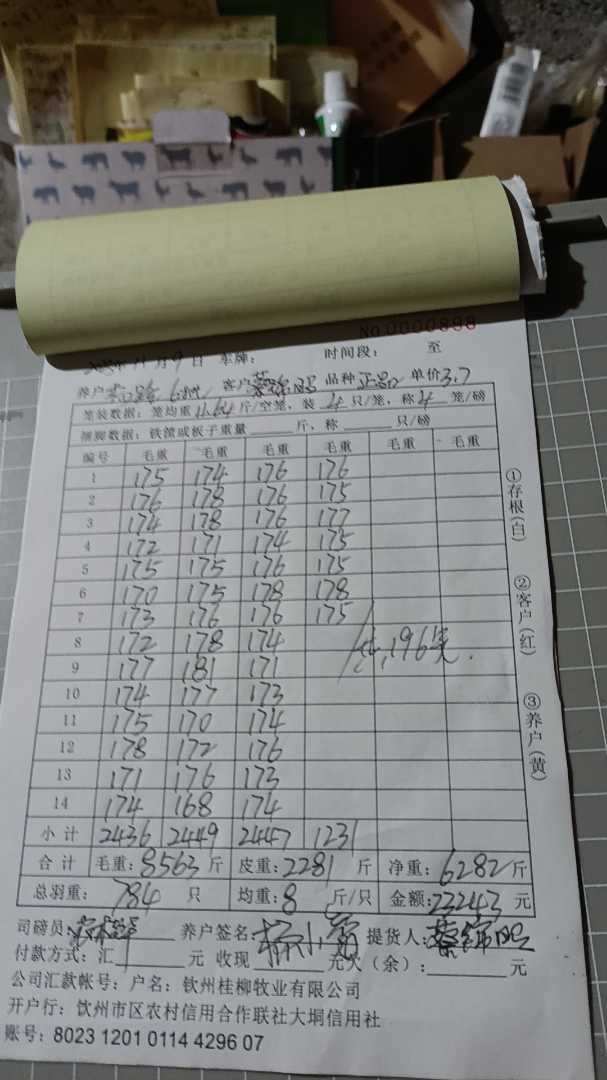 NO.0000898
11月9日 车牌： 时间段： 至
养户 客户 品种 单价3.7
笼装数据：笼均重11.64斤/空笼，装4只/笼，称4笼/磅
捆脚数据：铁筐或板子重量 斤，称 只/磅
编号 毛重 毛重 毛重 毛重 毛重 毛重
1 175 174 176 176
2 176 178 176 175
3 174 178 176 177
4 172 171 174 175
5 175 175 176 175
6 170 175 178 178
7 173 176 176 175
8 172 178 174
9 177 181 171
共,196笼.
10 174 177 173
11 175 170 174
12 178 172 176
13 171 176 173
14 174 168 174
小计 2436 2449 2447 1231
合计 毛重：8563斤 皮重：2281斤 净重：6282斤
总羽重：784只 均重：8斤/只 金额：23243元
①存根(白)
②客户(红)
③养户(黄)
司磅员： 养户签名： 提货人：
付款方式：汇 元 收现 元欠（余）： 元
公司汇款帐号：户名：钦州桂柳牧业有限公司
开户行：钦州市区农村信用合作联社大垌信用社
账号：8023 1201 0114 4296 07